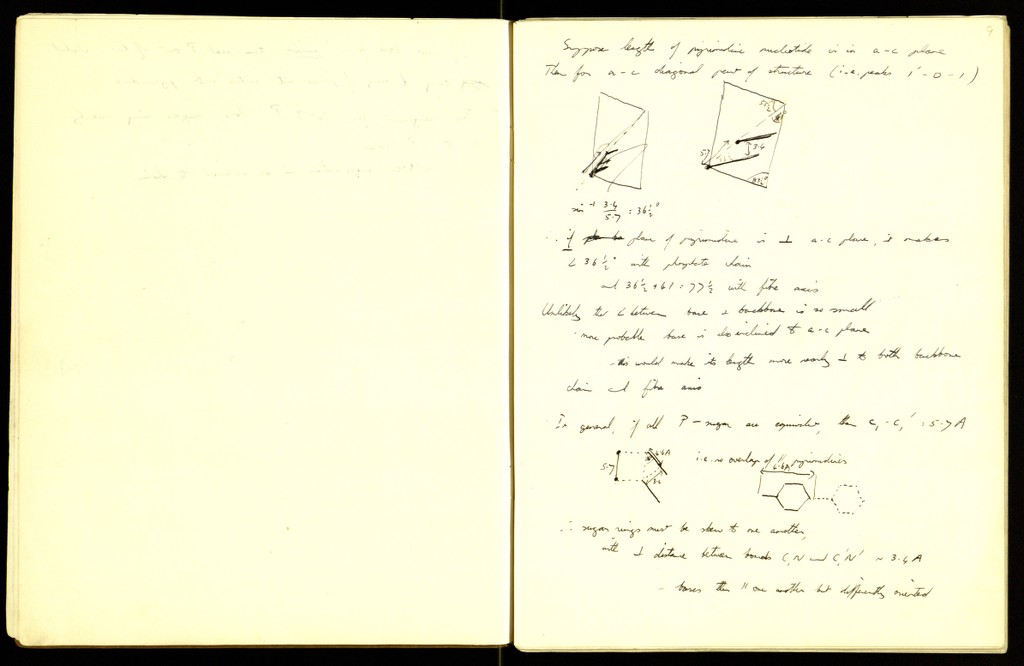 9
Suppose length of pyrimidine nucleotide is in a-c plane
Then for a-c diagonal part of structure (i.e. peaks 1'-0-1)
5.7
3.4
sin⁻¹ 3.4/5.7 = 36½°
∴ if plane of pyrimidine is ⊥ a-c plane, it makes
∠ 36½° with phosphate chain
and 36½ + 61 = 77½ with fibre axis
Unlikely that ∠ between base & backbone is so small
- more probable base is also inclined to a-c plane
- this would make its length more nearly ⊥ to both backbone
chain and fibre axis
In general, if all P-sugar are equivalent, then C₁-C₁' = 5.7 A
5.7
6.6A
i.e. no overlap of || pyrimidines
6.6A
∴ sugar rings must be skew to one another,
with ⊥ distance between bonds C₁N and C₁'N' ~ 3.4 A
- bases then || one another but differently oriented